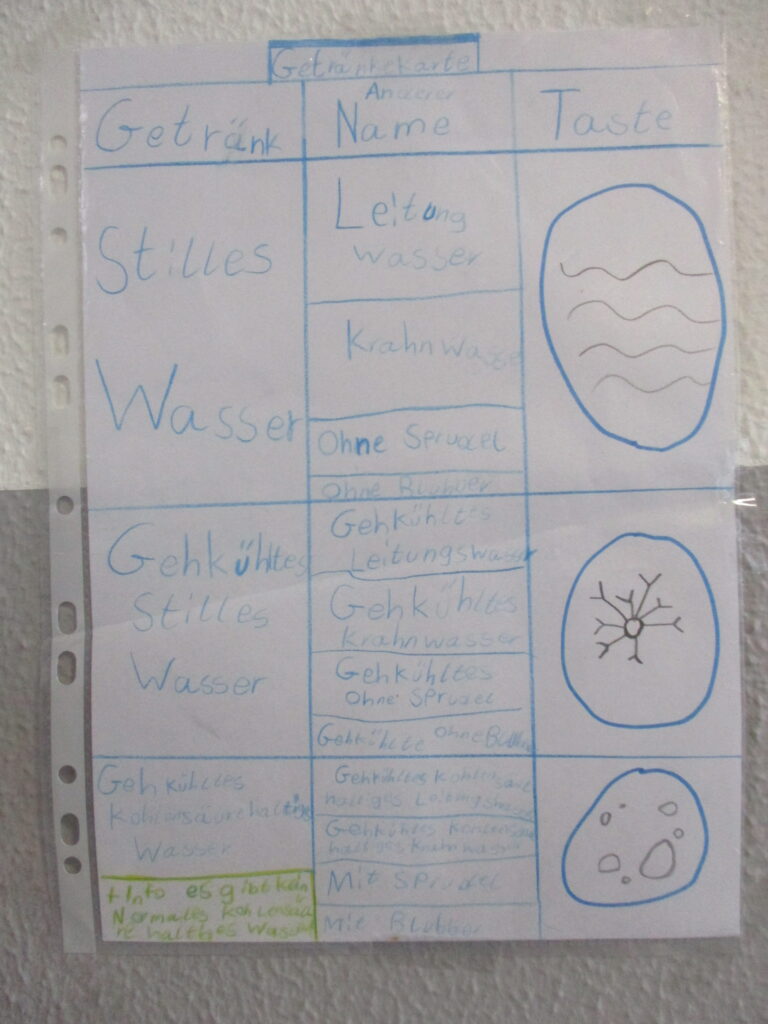 Getränkekarte
Getränk
Anderer
Name
Taste
Stilles
Wasser
Leitung
wasser
Krahnwasse
Ohne Sprudel
Ohne Blubber
Gehkühltes
Stilles
Wasser
Gehkühltes
Leitungswasser
Gehkühltes
Krahnwasser
Gehkühltes
Ohne Sprudel
Gehkühlte Ohne
Geh kühltes
Kohlensäurehaltiges
Wasser
+ Info es gibt kein
Normales Kohlensäu
re haltiges Wasser
Gehkühltes Kohlensäure
haltiges Leitungswasser
Gehkühltes
haltiges Krahnwasser
Mit Sprudel
Mit Blubber